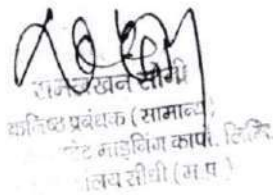 रामलखन सोनी
कनिष्ठ प्रबंधक (सामान्य)
स्टेट माइनिंग कार्पो. लिमि.
सीधी (म.प्र.)